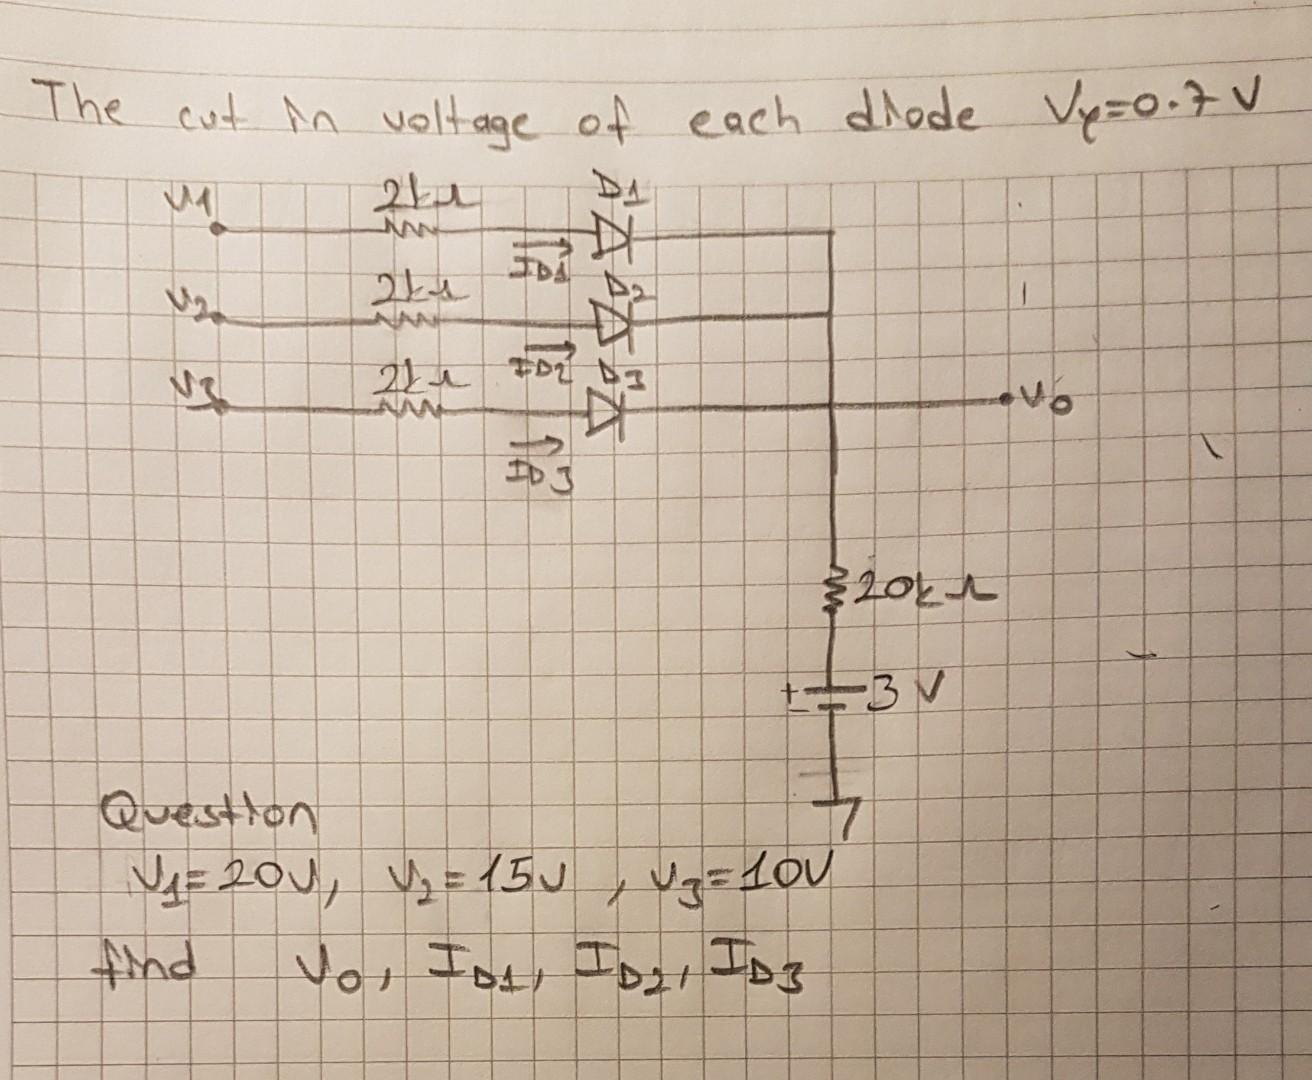 The cut in voltage of each diode Vγ=0.7 V
V1 2kΩ D1
ID1
V2 2kΩ D2
ID2
V3 2kΩ D3
ID3
Vo
20kΩ
+
- 3 V
Question
V1=20V, V2=15V, V3=10V
find Vo, ID1, ID2, ID3